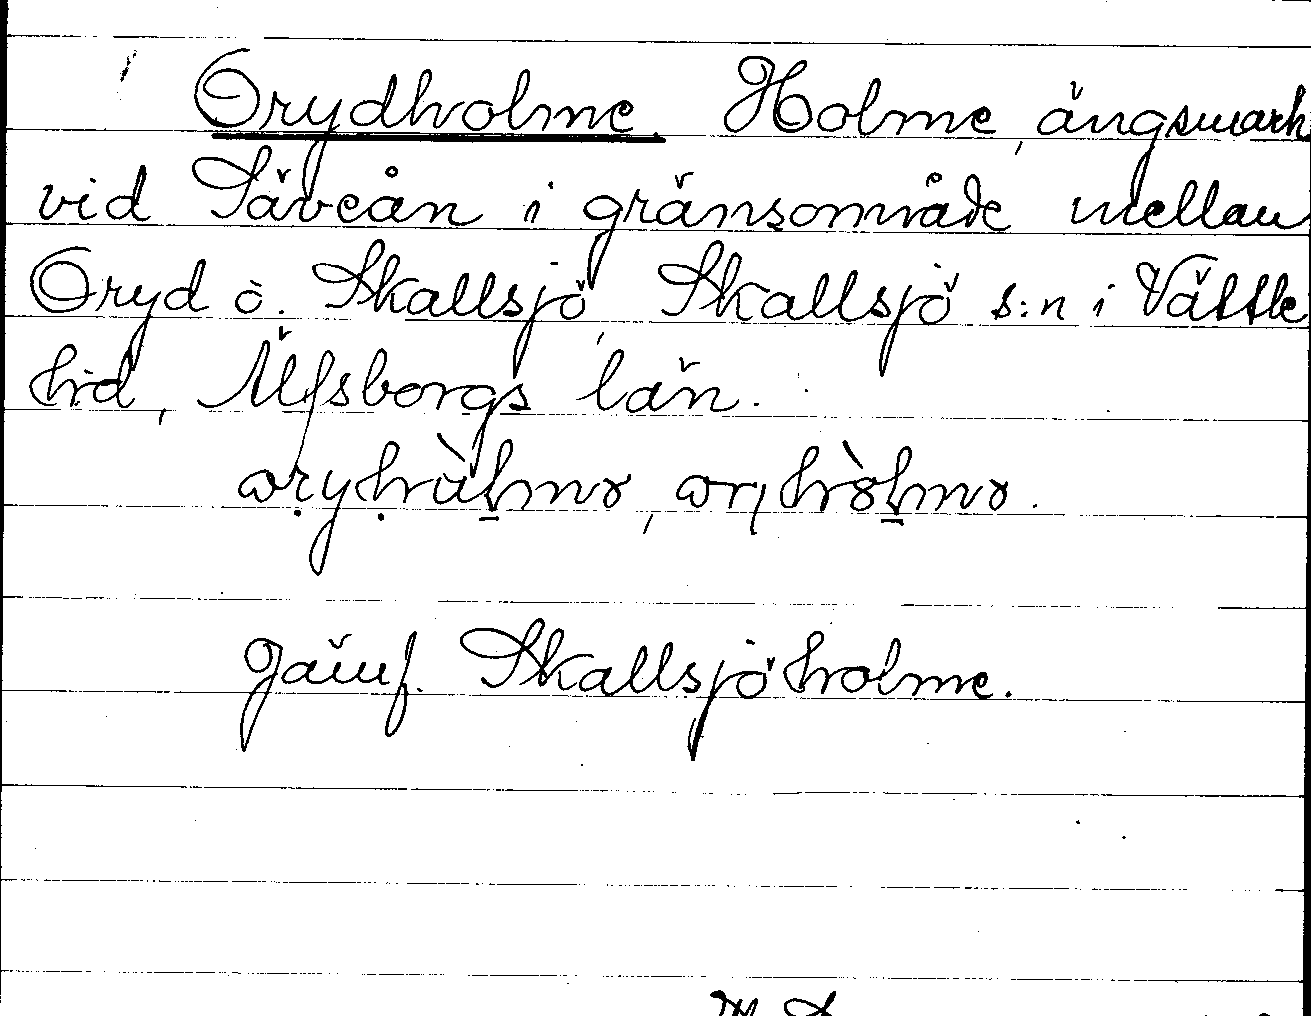 Orydholme. Holme, ängsmark
vid Säveån i gränsområde mellan
Oryd o. Skallsjö, Skallsjö s:n i Vättle
hd, Älfsborgs län.
Jämf. Skallsjöholme.